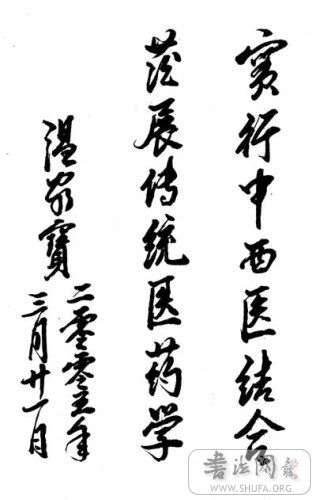 實行中西医结合
发展传统医药学
温家寶
二零零五年
三月廿一日
書法网
WWW.SHUFA.ORG